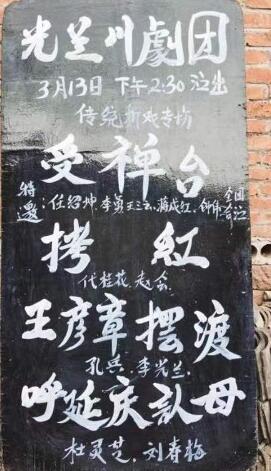 光兰川劇团
3月13日 下午2:30 演出
传统折戏专场
受禅台
特邀:任绍坤.李勇.王三云.蒋成红.钟伟 全团合演
拷紅
代桂花.赵会.
王彦章摆渡
孔兵.李光兰.
呼延庆认母
杜灵芝.刘春梅